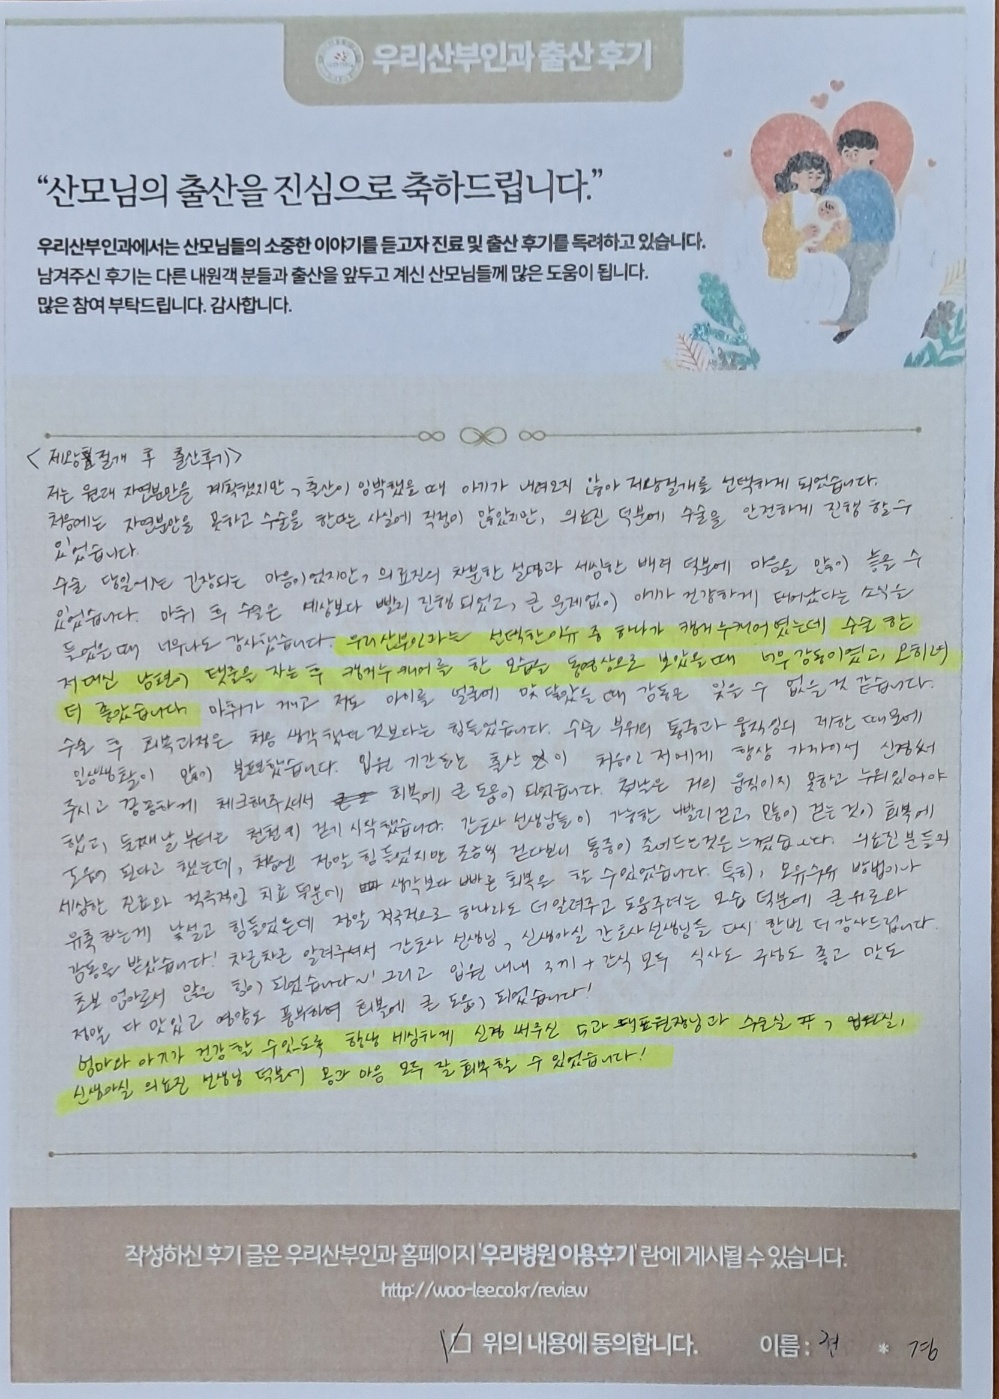 우리산부인과 출산 후기
“산모님의 출산을 진심으로 축하드립니다.”
우리산부인과에서는 산모님들의 소중한 이야기를 듣고자 진료 및 출산 후기를 독려하고 있습니다.
남겨주신 후기는 다른 내원객 분들과 출산을 앞두고 계신 산모님들께 많은 도움이 됩니다.
많은 참여 부탁드립니다. 감사합니다.
<제왕절개 후 출산후기>
저는 원래 자연분만을 계획했지만, 출산이 임박했을 때 아기가 내려오지 않아 제왕절개를 선택하게 되었습니다.
처음에는 자연분만을 못하고 수술을 한다는 사실에 걱정이 많았지만, 의료진 덕분에 수술을 안전하게 진행 할 수
있었습니다.
수술 당일에는 긴장되는 마음이었지만, 의료진의 차분한 설명과 세심한 배려 덕분에 마음을 많이 놓을 수
있었습니다. 마취 후 수술은 예상보다 빨리 진행 되었고, 큰 문제없이 아기가 건강하게 태어났다는 소식을
들었을 때 너무나도 감사했습니다. 우리산부인과는 선택한 이유 중 하나가 캥거루케어였는데 수술 한
저 대신 남편이 탯줄을 자른 후 캥거루케어를 한 모습을 동영상으로 보았을 때 너무 감동이였고, 오히려
더 좋았습니다. 마취가 깨고 저도 아이를 얼굴에 맞닿았을 때 감동은 잊을 수 없을 것 같습니다.
수술 후 회복과정은 처음 생각했던 것보다는 힘들었습니다. 수술 부위의 통증과 움직임의 제한 때문에
일상생활이 많이 불편했습니다. 입원 기간동안 출산이 처음인 저에게 항상 가까이서 신경써
주시고 꼼꼼하게 체크해주셔서 회복에 큰 도움이 되었습니다. 첫날은 거의 움직이지 못하고 누워있어야
했고, 둘째날 부터는 천천히 걷기 시작했습니다. 간호사 선생님들이 가능한 빨리 걷고, 많이 걷는 것이 회복에
도움이 된다고 했는데, 처음엔 정말 힘들었지만 조금씩 걷다보니 통증이 줄어드는것을 느꼈습니다. 의료진분들의
세심한 진료와 적극적인 치료 덕분에 생각보다 빠른 회복을 할 수 있었습니다. 특히, 모유수유 방법이나
유축하는게 낯설고 힘들었는데 정말 적극적으로 하나라도 더 알려주고 도움주려는 모습 덕분에 큰 위로와
감동을 받았습니다! 차근차근 알려주셔서 간호사 선생님, 신생아실 간호사선생님들 다시 한번 더 감사드립니다.
초보 엄마로서 많은 힘이 되었습니다~! 그리고 입원 내내 3끼 + 간식 모두 식사도 구성도 좋고 맛도
정말 다 맛있고 영양도 풍부하여 회복에 큰 도움이 되었습니다!
엄마와 아기가 건강할 수있도록 항상 세심하게 신경 써주신 대표원장님과 수술실,
신생아실 의료진 선생님 덕분에 몸과 마음 모두 잘 회복할 수 있었습니다!
작성하신 후기 글은 우리산부인과 홈페이지 '우리병원 이용후기' 란에 게시될 수 있습니다.
http://woo-lee.co.kr/review
위의 내용에 동의합니다. 이름 : 전 * 경